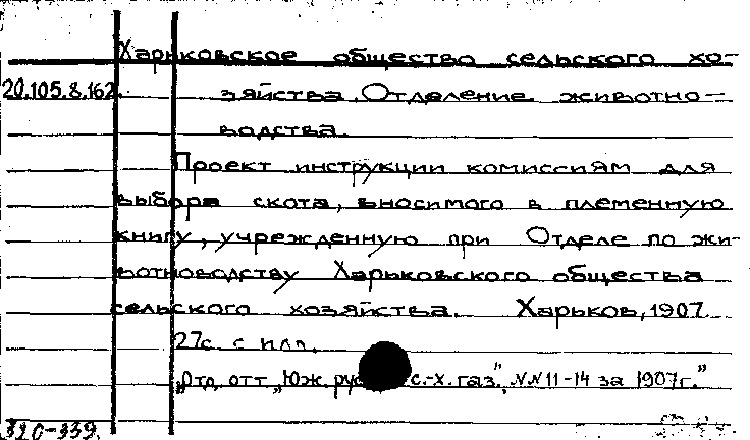 Харьковское общество сельского хо-
20.105.8.162. зяйства. Отделение животно-
водства.
Проект инструкции комиссиям для
выбора скота, вносимого в племенную
книгу, учрежденную при Отделе по жи-
вотноводству Харьковского общества
сельского хозяйства. Харьков, 1907.
27с. с илл.
"Отд. отт. "Юж. рус с.-х. газ.", NN 11-14 за 1907г."
320-339.